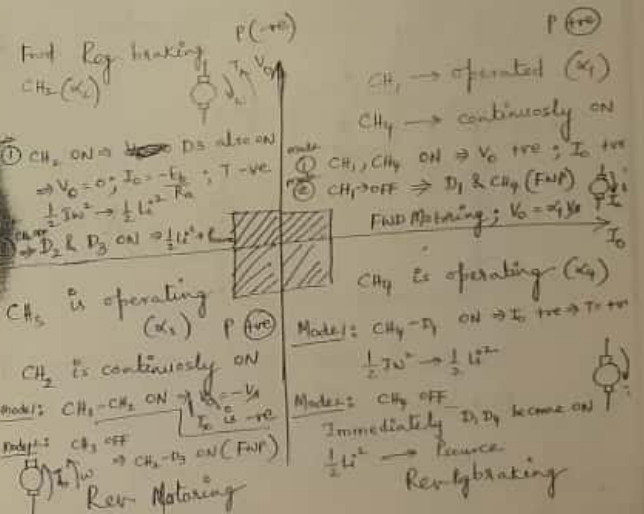 P(-ve)
Fwd Reg braking
CH2(α2)
TA V0
① CH2 ON ⇒ D3 also ON
⇒ V0 = 0; I0 = -Eb/Ra; T -ve
½Jω² → ½Li²
⇒ D2 & D3 ON ⇒ ½Li² +
P +ve
CH1 → operated (α1)
CH4 → continuosly ON
mode ① CH1, CH4 ON ⇒ V0 +ve; I0 +ve
② CH1→OFF ⇒ D1 & CH4 (FWP)
FWD Motoring; V0 = α1 Vs
I0
CH3 is operating
(α3) P +ve
CH2 is continuosly ON
Mode1: CH3-CH2 ON ⇒ V0 = -VA
I0 is -ve
Mode2: CH3 OFF
⇒ CH2-D3 ON (FWP)
I0 ω
Rev Motoring
CH4 is operating (α4)
Mode1: CH4-D1 ON ⇒ I0 +ve ⇒ T= +ve
½Jω² → ½Li²
Mode2: CH4 OFF
Immediately D1 D4 become ON
½Li² → Psource
Rev Rgbraking